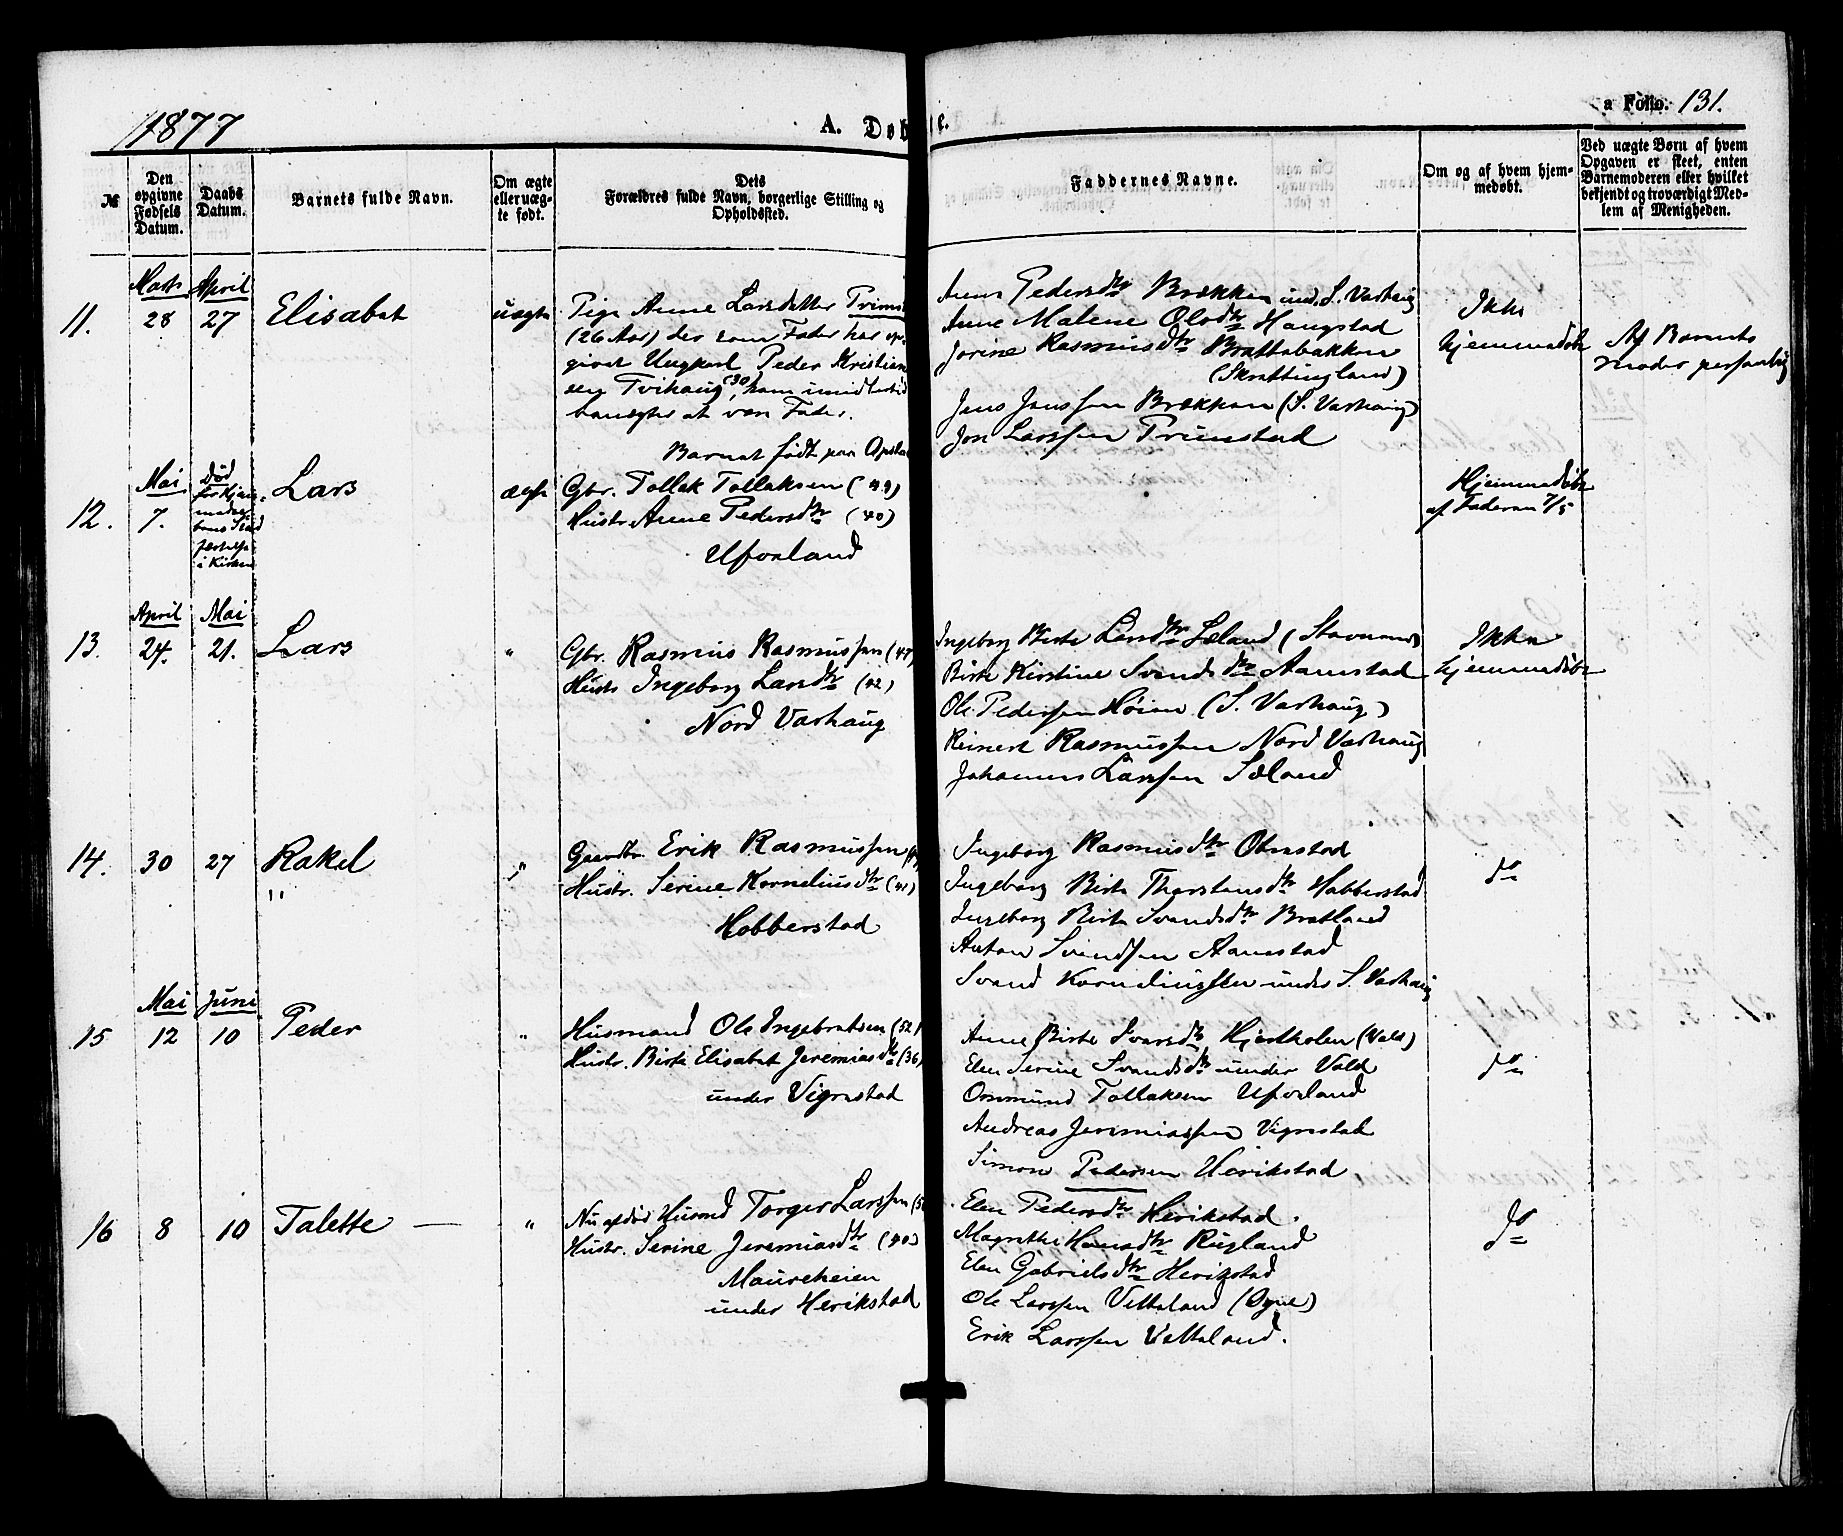 1877
A. Døb
e.
a Folio. 131.
№
Den opgivne Fødsels Datum.
Daabs Datum.
Barnets fulde Navn.
Om ægte eller uægte født.
Dets Forældres fulde Navn, borgerlige Stilling og Opholdssted.
Faddernes Navne.
Om og af hvem hjemmedøbt.
Ved uægte Børn af hvem Opgaven er skeet, enten Barnemoderen eller hvilket bekjendt og troværdigt Medlem af Menigheden.
Marts April
11. 28 27 Elisabet uægte
Pige Anne Larsdatter Trims
(26 Aar) der som Fader har op
givet Ungkarl Peder Kristian
sen Tvihaug (30), han imidlertid
benægter at være Fader.
Barnet født paa Opsta
Anne Pedersdtr Brække und. S. Varhaug
Anne Malene Olsdtr Haugstad
Jorine Rasmusdtr Brattebakken
(Skrettingland)
Jens Jenssen Brækken (S. Varhaug)
Jon Larssen Trimstad
Ikke
hjemmedøbt
Af Barnets
moder personlig
Mai
12. 7.
Død
før Hjem
medaa
bens Stad
fæstelse
i Kirken
Lars ægte
Gbr. Tollak Tollaksen (49)
Hustr Anne Pedersdtr (40)
Ueland
Hjemmedøbt
af Faderen 7/5
April Mai
13. 24. 21. Lars "
Gbr. Rasmus Rasmussen (47)
Hustr Ingeborg Larsdtr (42)
Nord Varhaug
Ingeborg Birte Larsdtr Læland (Stavanger)
Birte Kirstine Svendsdtr Aanestad
Ole Pedersen Høien (S. Varhaug)
Reinert Rasmussen Nord Varhaug
Johannes Larssen Sæland
Ikke
hjemmedøbt
14. 30 27 Rakel "
"
Gaardbr. Erik Rasmussen
Hustr. Serine Korneliusdtr (41)
Hobberstad
Ingeborg Rasmusdtr Obrestad
Ingeborg Birte Thorstensdtr Hobberstad
Ingeborg Birte Svendsdtr Bratland
Anton Svendsen Aanestad
Svend Korneliussen under S. Varhaug
do
Mai Juni
15 12 10 Peder "
Husmand Ole Ingebretsen (52)
Hustr. Birte Elisabet Jeremiasdtr (36)
under Vigrestad
Anne Birte Ivarsdtr Hjertholen (Vold)
Elen Serine Svendsdtr under Vold
Ommund Tollaksen Ueland
Andreas Jeremiassen Vigrestad
Simon Pedersen Herikstad
do
16 8 10 Talette — "
Nu afdød Husmd Torger Larssen (5
Hustr. Serine Jeremiasdtr (40)
Maureheien
under Herikstad
Elen Pedersdtr Herikstad.
Magrethe Hansdtr Rugland
Elen Gabrielsdtr Herikstad
Ole Larssen Vetteland (Ogne)
Erik Larssen Vetteland.
do